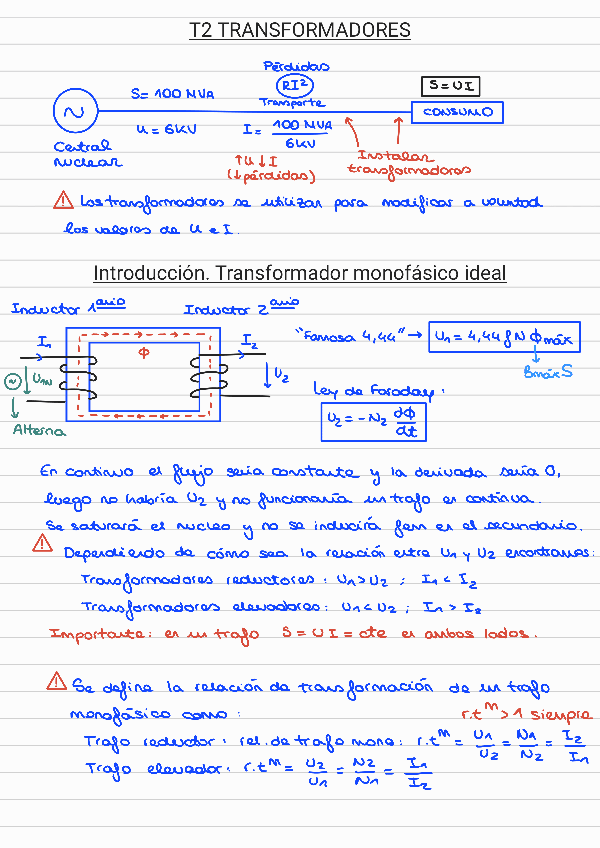 T2 TRANSFORMADORES
Pérdidas
RI²
Transporte
S = 100 MVA
S = UI
CONSUMO
U = 6KV
I = 100 MVA / 6KV
Central
Nuclear
↑U ↓I
(↓pérdidas)
Instalar
transformadores
⚠ Los transformadores se utilizan para modificar a voluntad
los valores de U e I.
Introducción. Transformador monofásico ideal
Inductor 1ario
Inductor 2ario
I1
I2
Φ
U1N
U2
Alterna
"Famosa 4,44" → U1 = 4,44 f N Φmáx
Bmáx S
Ley de Faraday:
U2 = -N2 dΦ/dt
En continua el flujo sería constante y la derivada sería 0,
luego no habría U2 y no funcionaría un trafo en continua.
Se saturará el nucleo y no se inducirá fem en el secundario.
⚠ Dependiendo de cómo sea la relación entre U1 y U2 encontramos:
Transformadores reductores: U1 > U2 ; I1 < I2
Transformadores elevadores: U1 < U2 ; I1 > I2
Importante: en un trafo S = UI = cte en ambos lados.
⚠ Se define la relación de transformación de un trafo
monofásico como:
r.tᵐ > 1 siempre
Trafo reductor: rel. de trafo mono: r.tᵐ = U1/U2 = N1/N2 = I2/I1
Trafo elevador: r.tᵐ = U2/U1 = N2/N1 = I1/I2